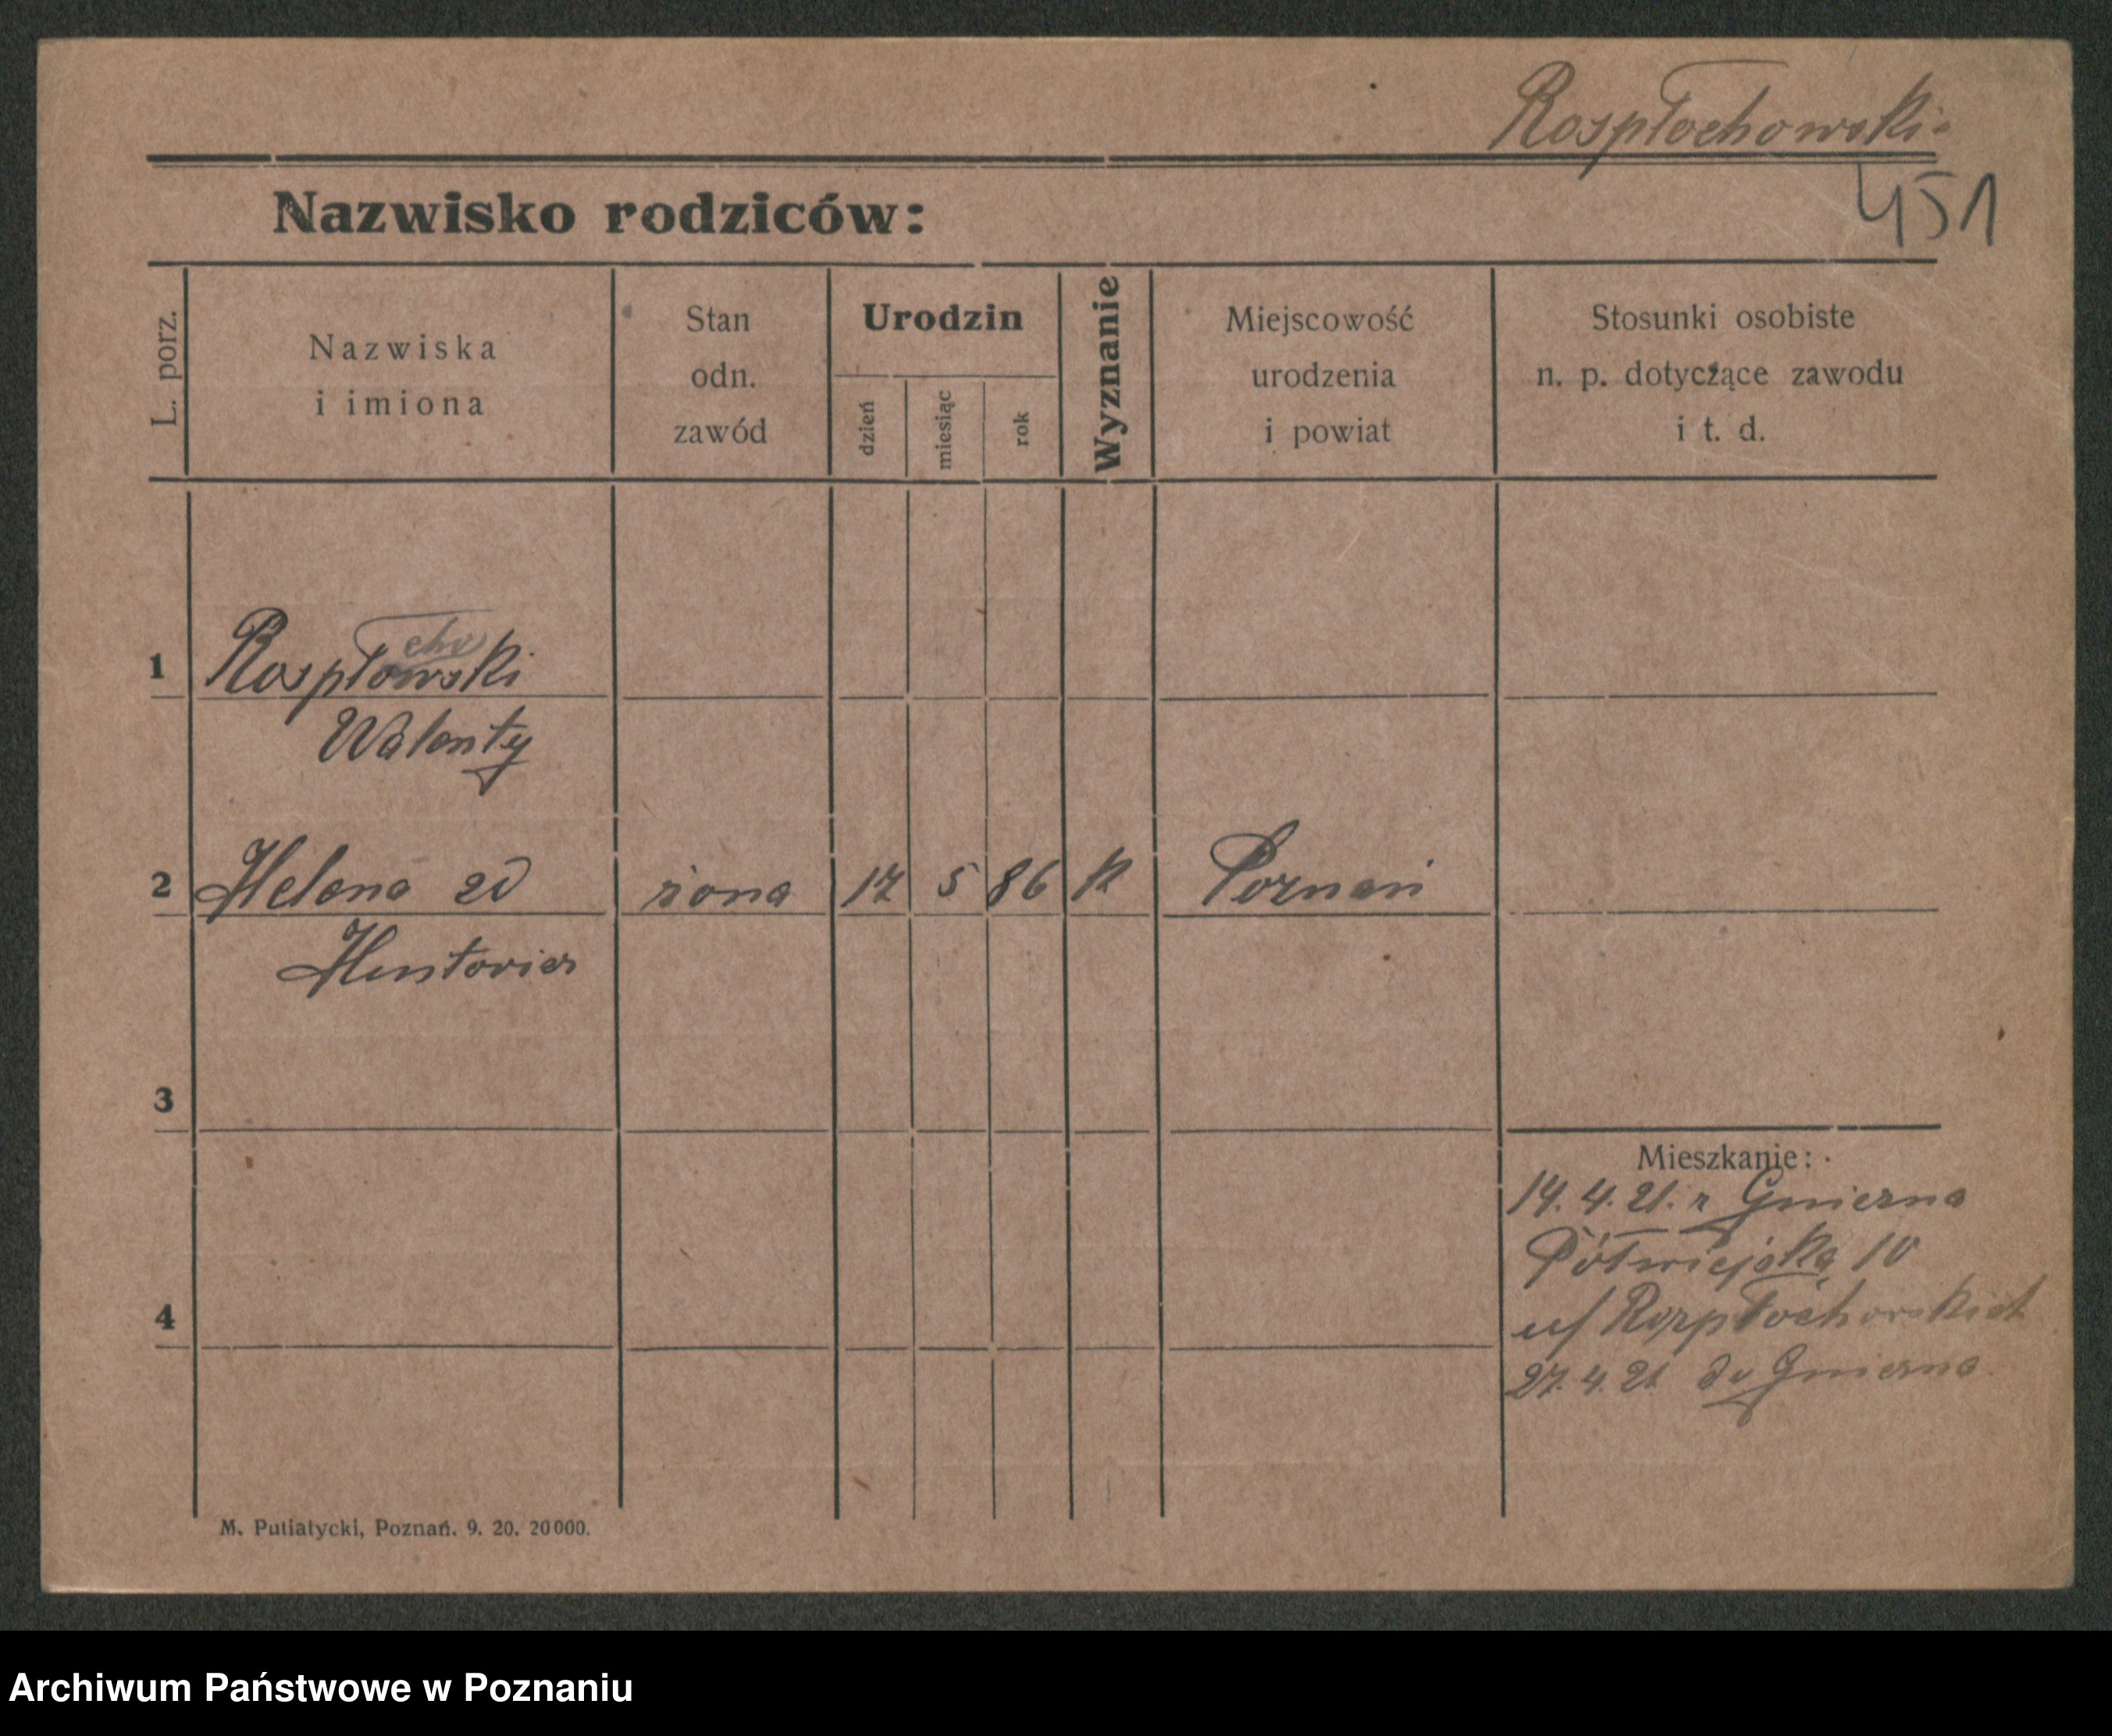 Rospłochowski
451
Nazwisko rodziców:
L. porz.
Nazwiska
i imiona
Stan
odn.
zawód
Urodzin
dzień
miesiąc
rok
Wyznanie
Miejscowość
urodzenia
i powiat
Stosunki osobiste
n. p. dotyczące zawodu
i t. d.
cho
1 Rospłowski
Walenty
2 Helena zd żona 17 5 86 k Poznań
3
Mieszkanie:
14. 4. 21. z Gniezna
Półwiejska 10
u/ Rozpłochowskich
4
27. 4. 21 do Gniezna
M. Putiatycki, Poznań. 9. 20. 20000.
Archiwum Państwowe w Poznaniu